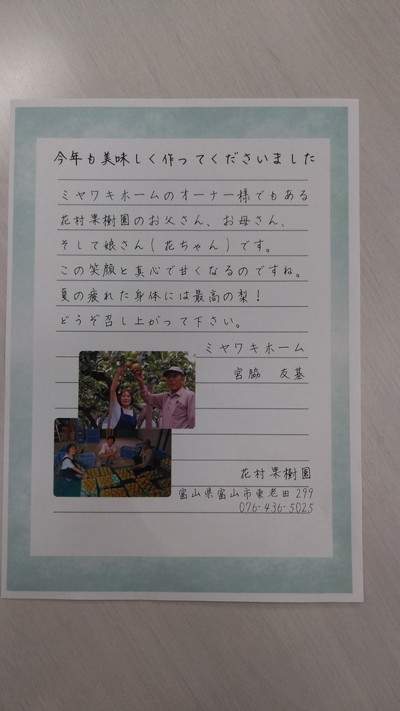 今年も美味しく作ってくださいました
ミヤワキホームのオーナー様でもある
花村果樹園のお父さん、お母さん、
そして娘さん(花ちゃん)です。
この笑顔と真心で甘くなるのですね。
夏の疲れた身体には最高の梨!
どうぞ召し上がって下さい。
ミヤワキホーム
宮脇 友基
花村果樹園
富山県富山市東老田299
076-436-5025